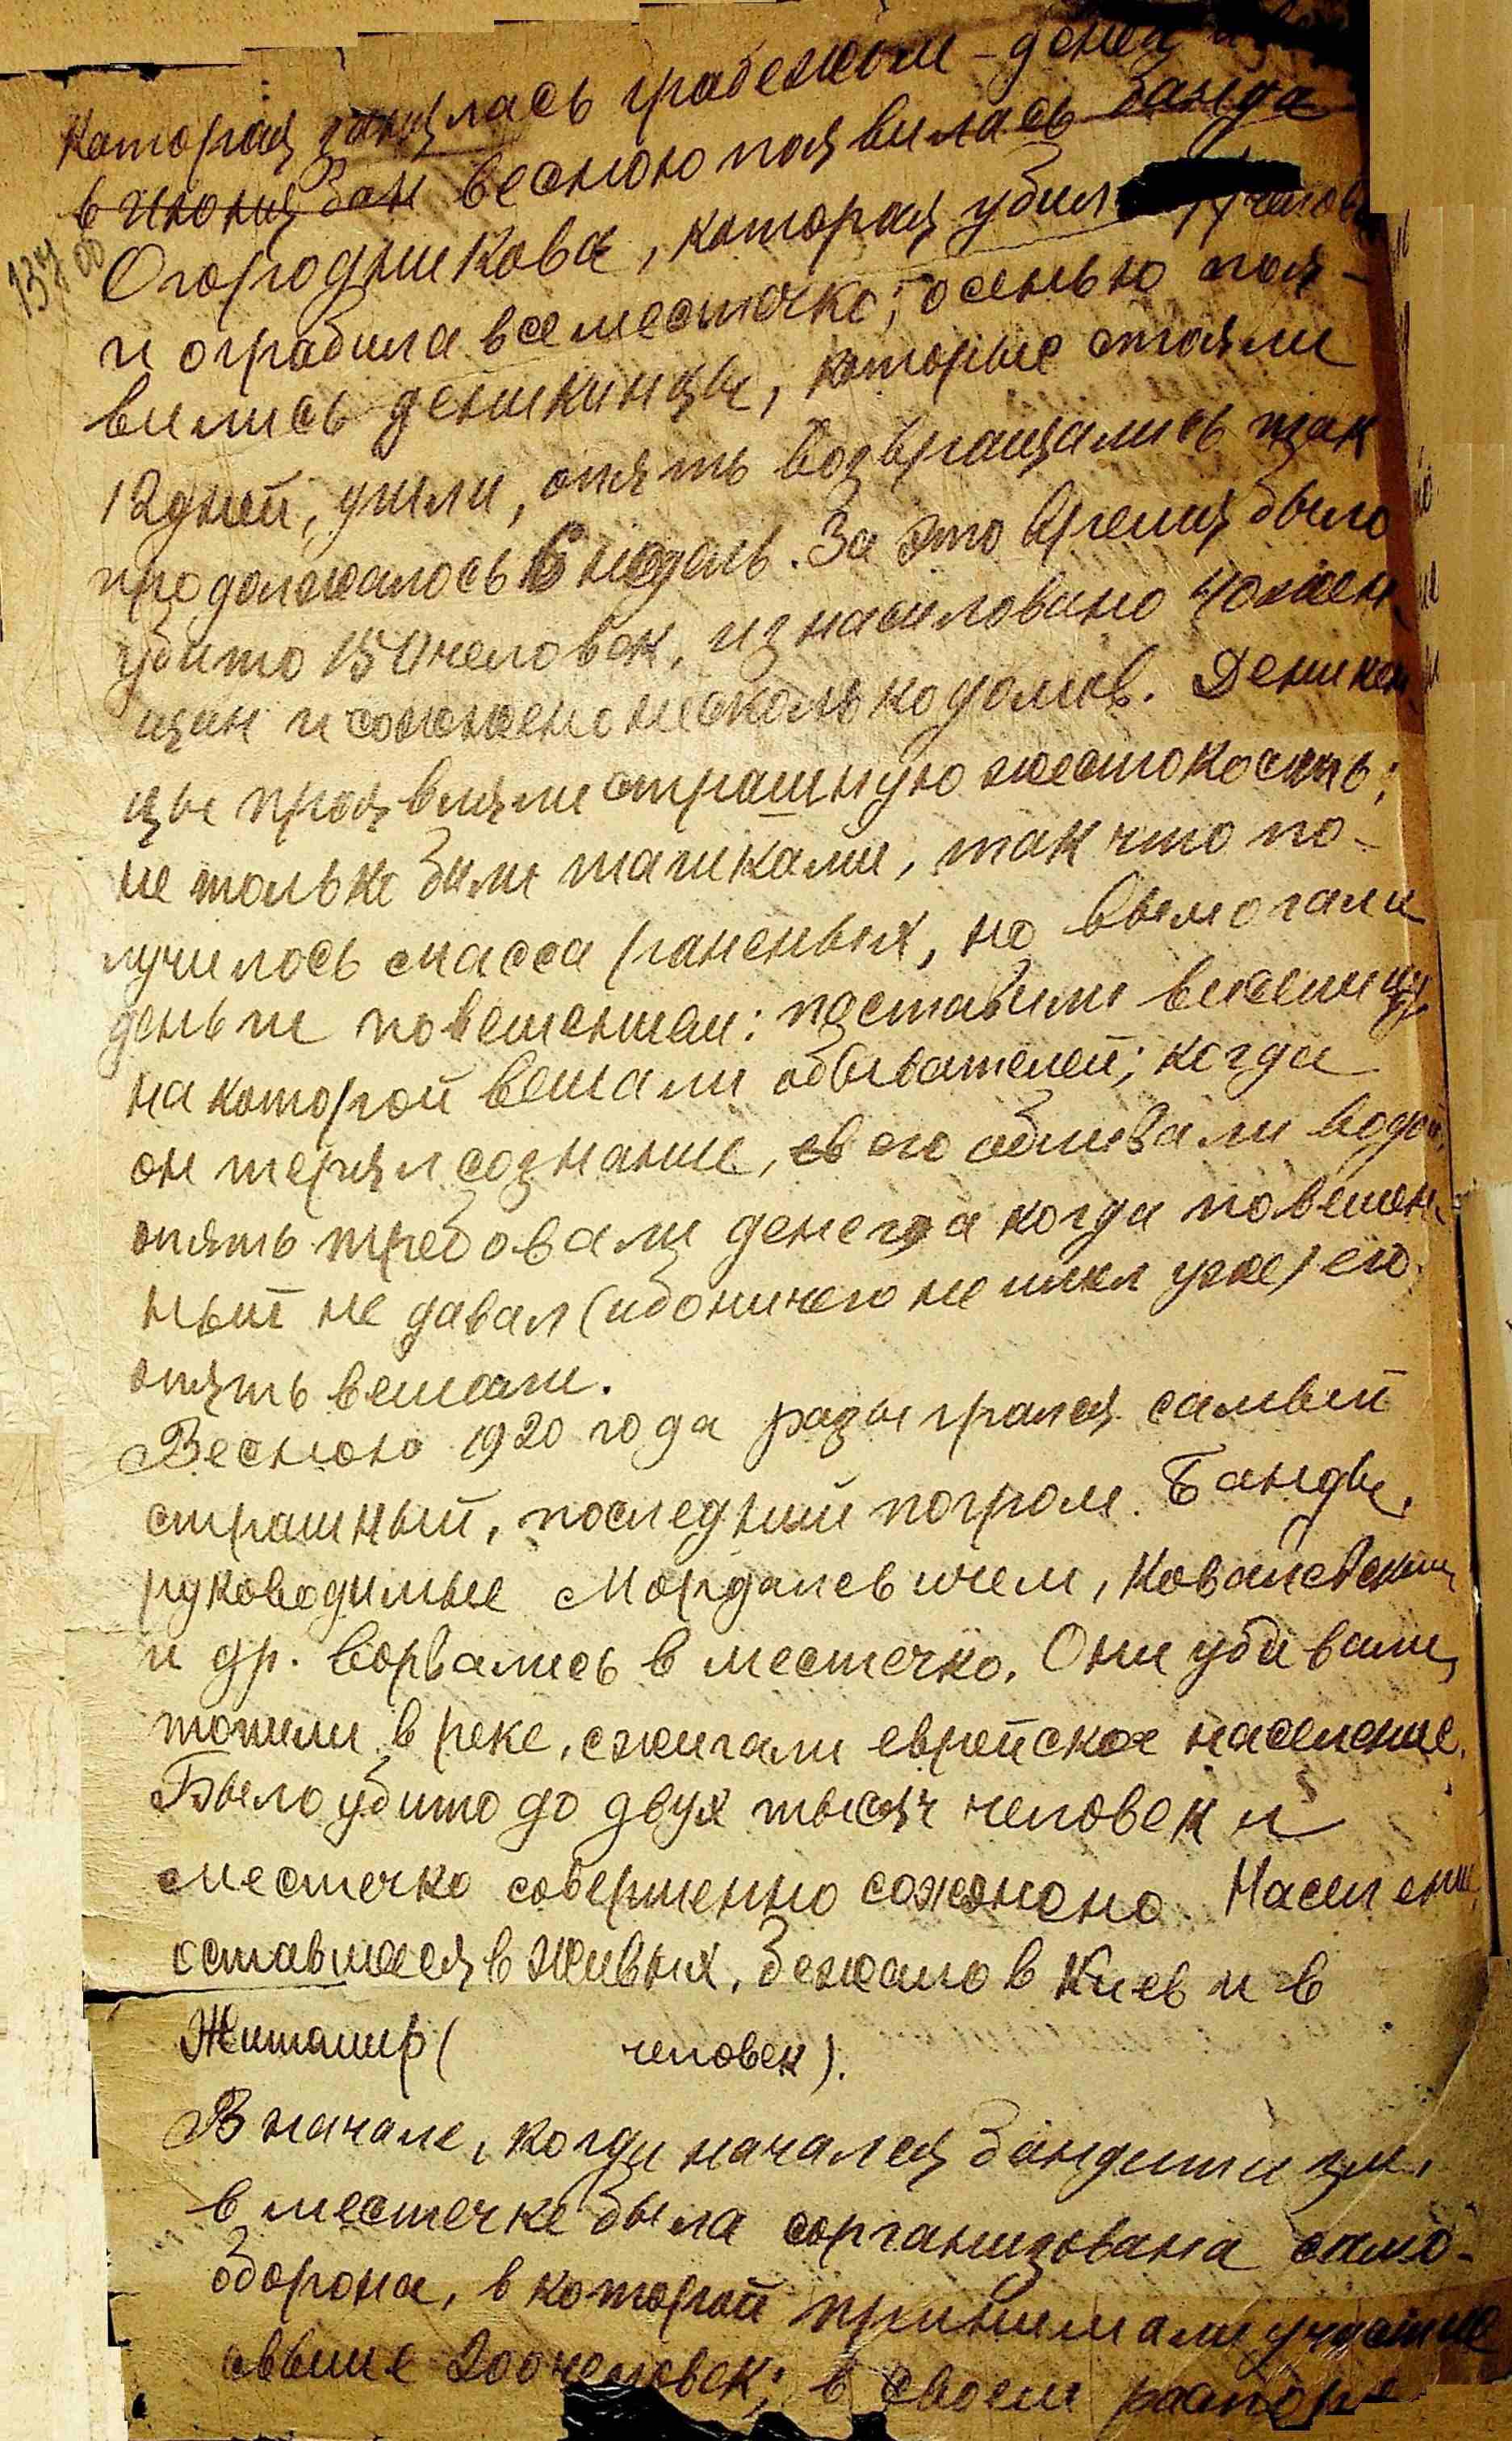 которая занялась грабежом - денег
в июня Зан весною появилась банда
137 об
Огородникова, которая убила
и ограбила все местечко; осенью поя-
вились деникинцы, которые стояли
12 дней, ушли, опять возвращались так
продолжалось 6 недель. За это время было
убито 150 человек, изнасиловано 40 жен-
щин и сожжено несколько домов. Деникин
цы проявляли страшную жестокость;
не только били шашками, так что по-
лучилось масса раненых, но вымогали
деньги повешением: поставили виселицу
на которой вешали обывателей; когда
он терял сознание, его обливали водой,
опять требовали денег, а когда повешен-
ный не давал (ибо ничего не имел уже) его
опять вешали.
Весною 1920 года разыгрался самый
страшный, последний погром. Банды,
руководимые Мордалевичем, Ковалевским
и др. ворвались в местечко. Они убивали,
топили в реке, сжигали еврейское население.
Было убито до двух тысяч человек и
местечко совершенно сожжено. Население,
оставшееся в живых, бежало в Киев и в
Житомир ( человек).
В начале, когда начался бандитизм,
в местечке была сорганизована само-
оборона, в которой принимали участие
свыше 200 человек; в своем распоре